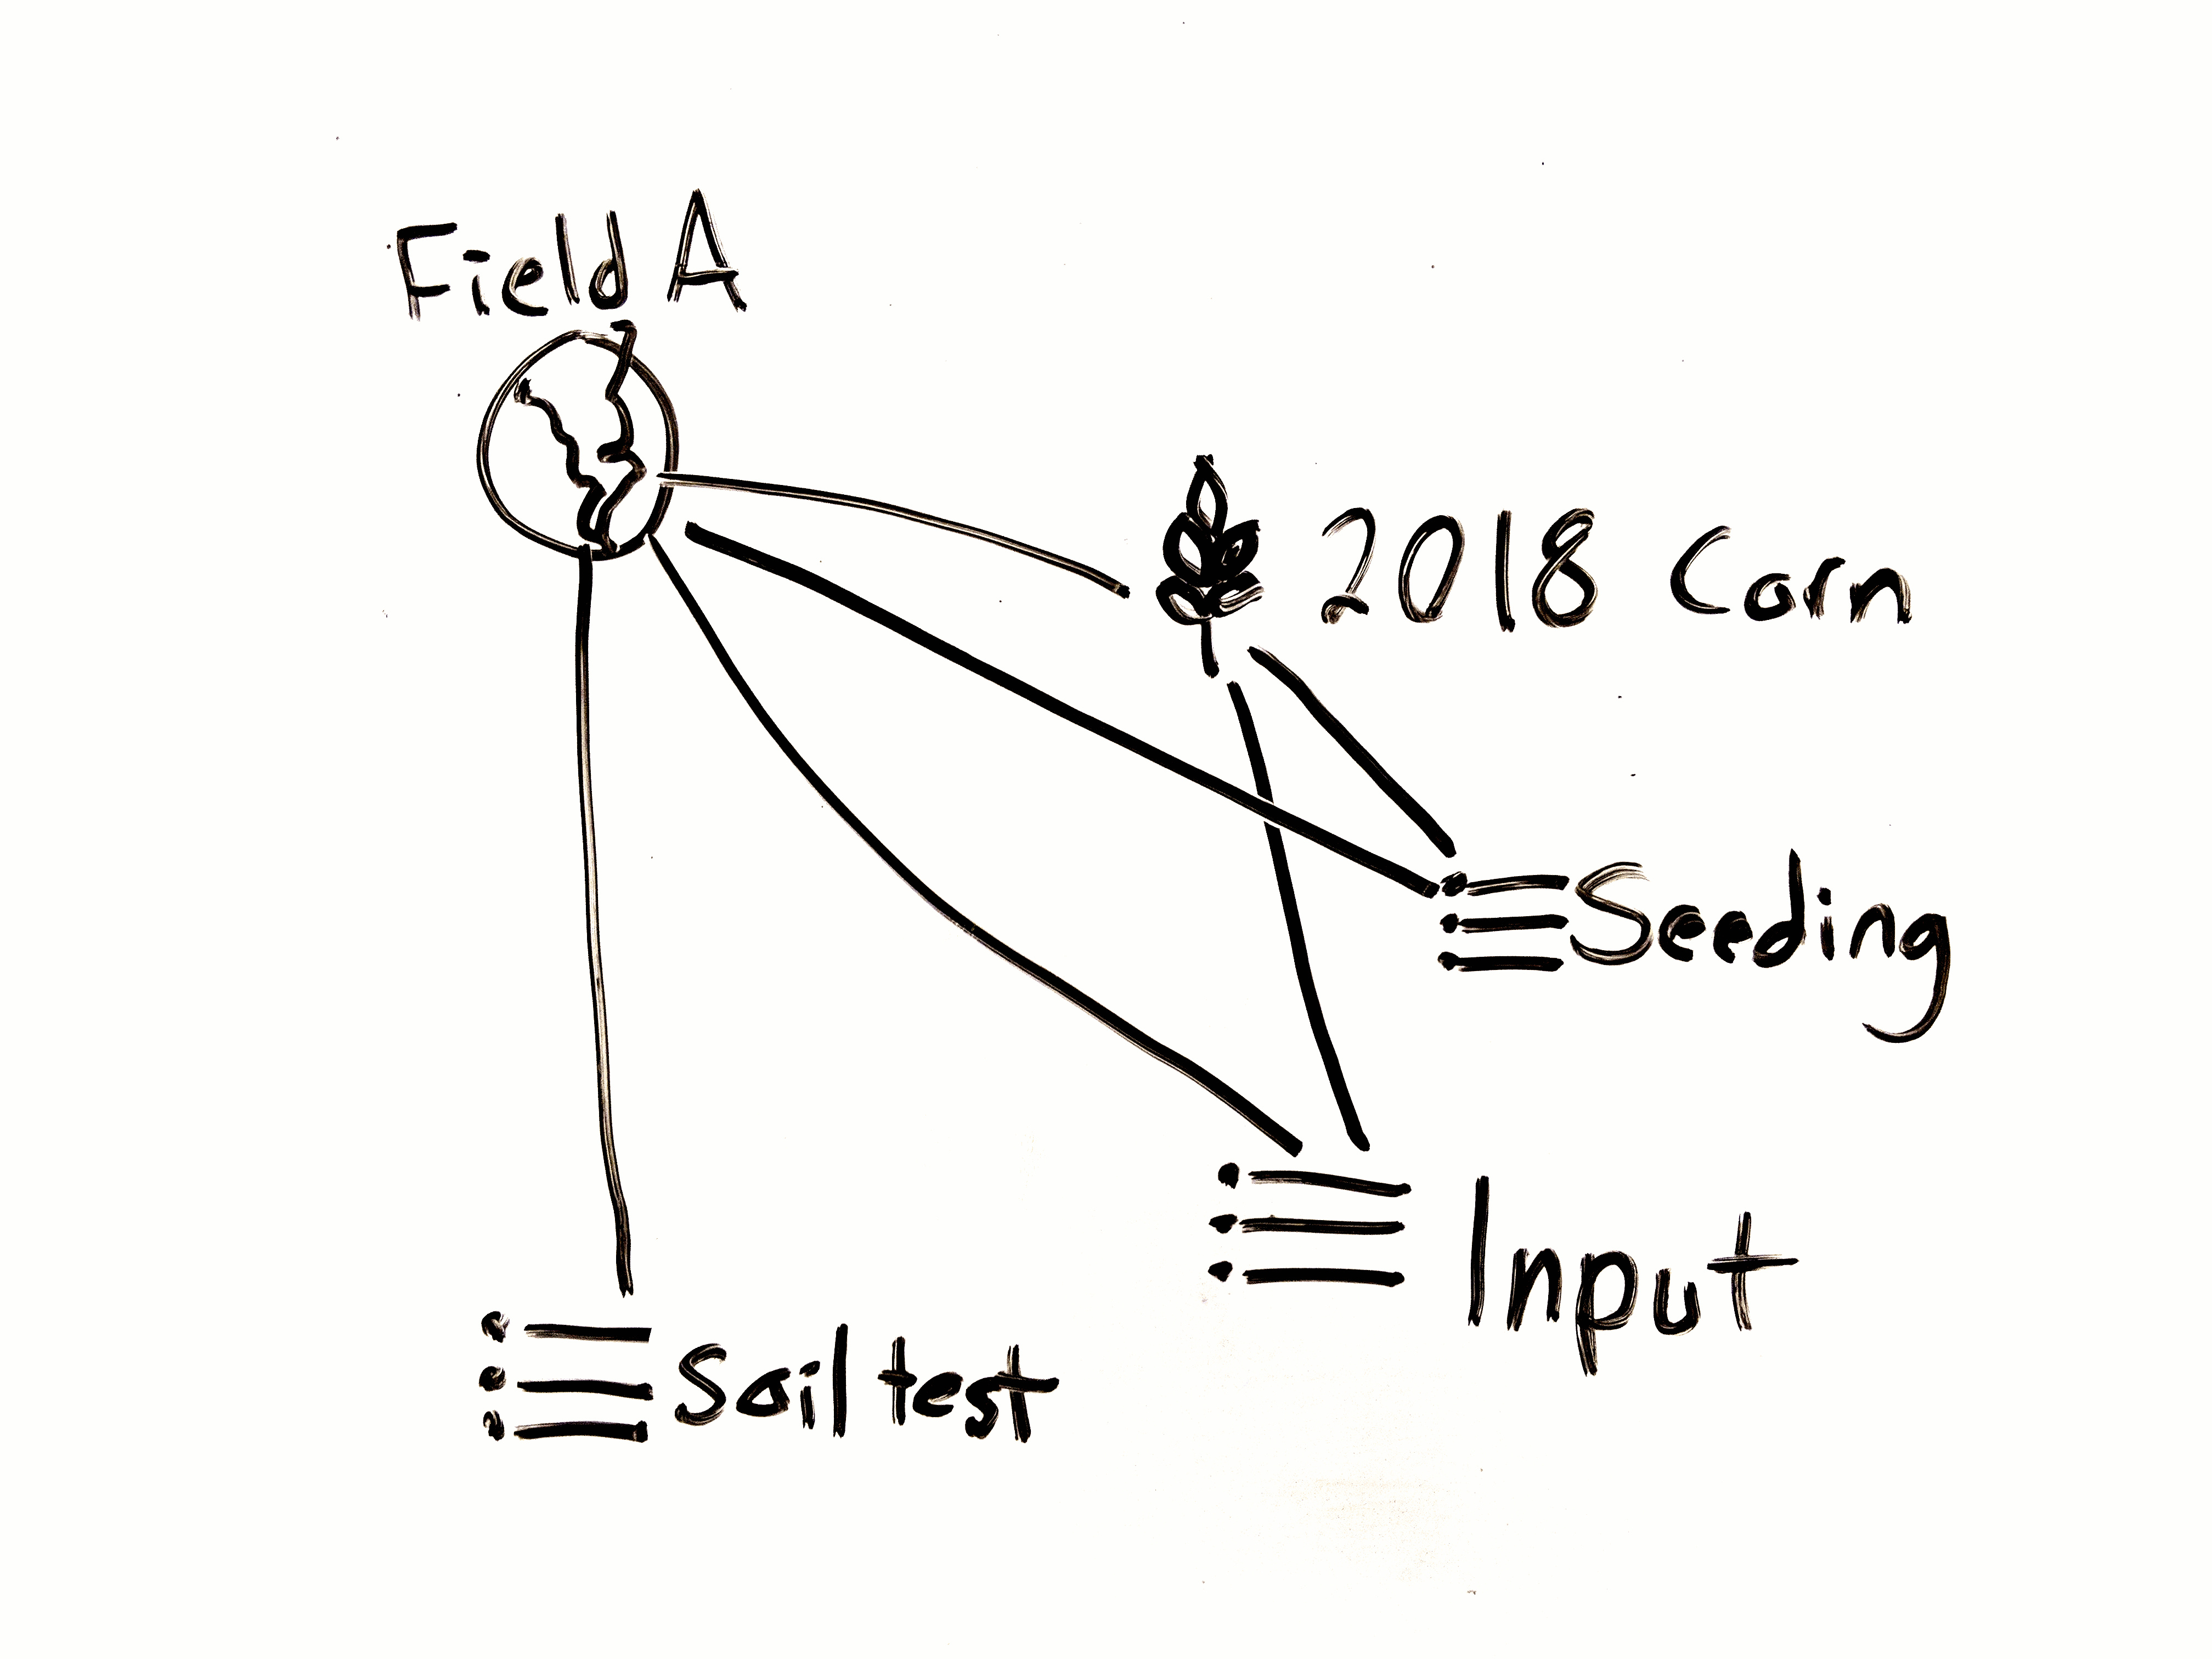 Field A
2018 Corn
Seeding
Input
Soil test